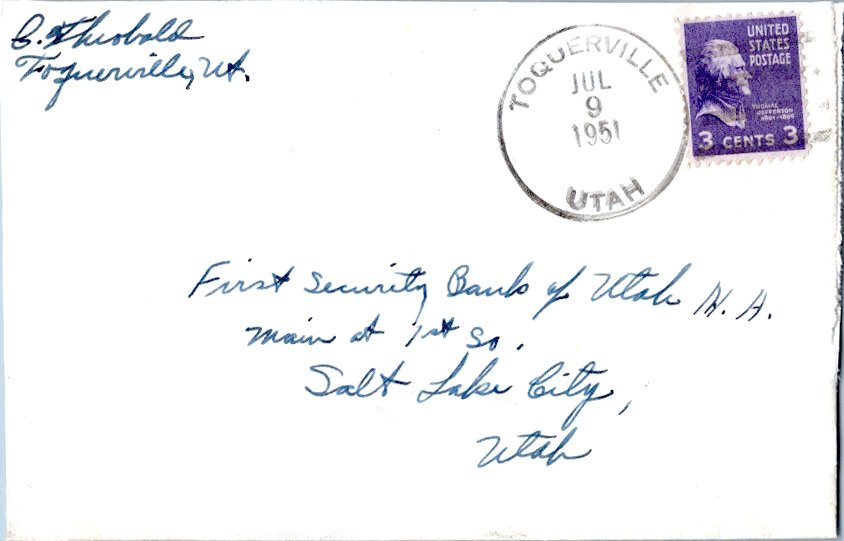 C. Theobald
Toquerville, Ut.
TOQUERVILLE
JUL
9
1951
UTAH
UNITED
STATES
POSTAGE
THOMAS
JEFFERSON
1801-1809
3 CENTS 3
First Security Bank of Utah N. A.
Main at 1st So.
Salt Lake City,
Utah